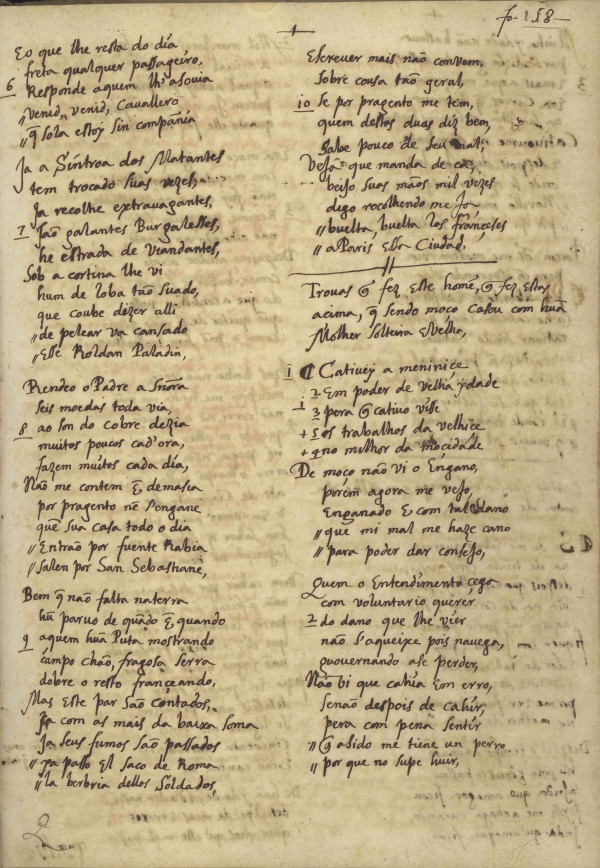 fo. 158
Eo que lhe resta do dia
freta qualquer passageiro,
6 Responde aquem lh'asouia
// venid, venid, Cavallero
// q̃ sola estoy sin compañia
Ja a Sintroa dos Matantes
tem trocado suas vezes,
Ja recolhe extravagantes,
7 Jaõ galantes Burgaleses,
he estrada de Viandantes,
Sob a cortina lhe vi
hum de loba taõ suado,
que coube dizer alli
// de pelear va cansado
// Esse Roldan Paladin,
Rendeo o Padre a Sñora
seis moedas toda via,
8 ao son do cobre dezia
muitos poucos cad'ora,
fazem muitos cada dia,
Naõ me contem q̃ demasia
por pragento nẽ s'engane
que sua casa todo o dia
// Entraõ por fuente Rabia
// Salen por San Sebastiane,
Bem q̃ naõ falta na terra
hũ paruo de quãdo ẽ quando
9 aquem huã Puta mostrando
campo chaõ, fragosa serra
dobre o resto franceando,
Mas este par saõ contados,
Ja com as mais da baixa soma
Ja seus fumos saõ passados
// ya passo El saco de Roma
// la berbria dellos Soldados,
Escreuer mais naõ convem,
sobre cousa taõ geral,
10 Se por pragento me tem,
quem destas duas diz bem,
sabe pouco de seu mal;
Veja que manda de cá,
beijo suas mãos mil vezes
digo recolhendo me Ja
// buelta, buelta los franceses
// a Paris essa Ciudad,
Trouas q̃ fez este homẽ, q̃ fez estas
acima, q̃ sendo moço casou com huã
Molher solteira E velha,
1 Catiuey a meninice
2 Em poder de velhia ydade
3 pera q̃ catiuo visse
+ 5 os trabalhos da velhice
+ 4 no milhor da mocidade
De moço naõ vi o Engano,
porem agora me vejo,
Enganado E com tal dano
// que mi mal me haze cano
// para poder dar consejo,
Quem o Entendimento cega
com voluntario querer
2 do dano que lhe vier
naõ s'aqueixe pois navega,
guouernando a se perder,
Naõ bi que cahia em erro,
senaõ despois de cahir,
pera com pena sentir
// q̃ asido me tiene un perro
// por que no supe huir,